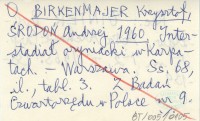 BIRKENMAJER Krzysztof,
ŚRODOŃ Andrzej 1960. Inter-
stadiał oryniacki w Karpa-
tach. – Warszawa. Ss. 68,
il., tabl. 3. Z Badań
Czwartorzędu w Polsce nr 9.